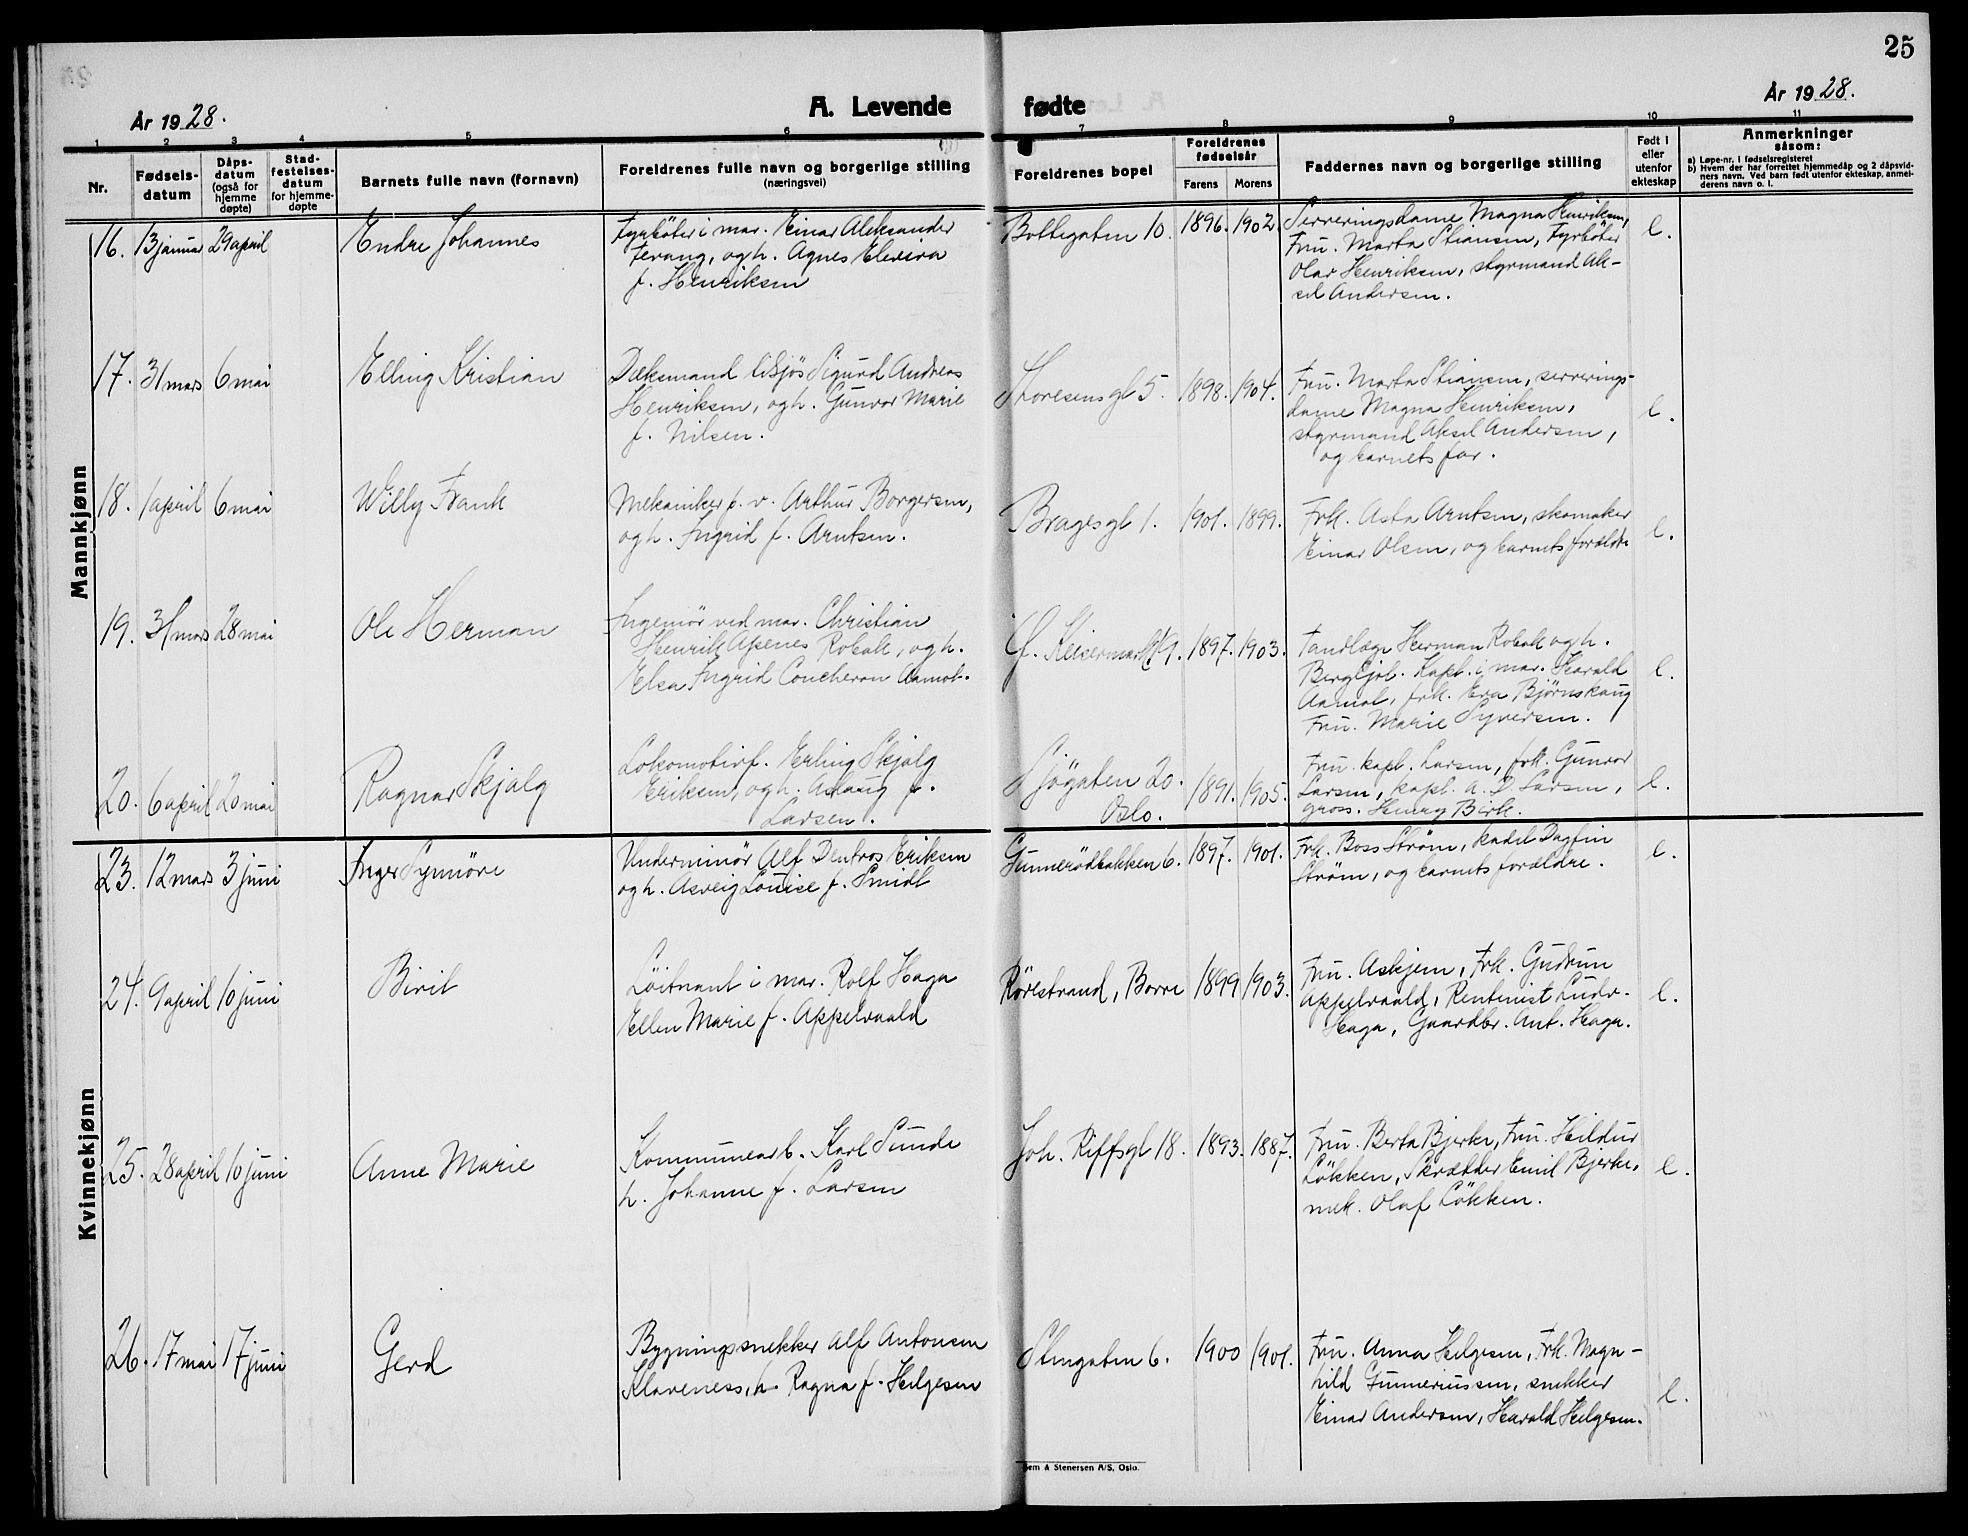 25
År 1928.
A. Levende fødte
År 1928.
1 2 3 4 5 6 7 8 9 10 11
Nr.
Fødsels-
datum
Dåps-
datum
(også for
hjemme
døpte)
Stad-
festelses-
datum
for hjemme-
døpte
Barnets fulle navn (fornavn)
Foreldrenes fulle navn og borgerlige stilling
(næringsvei)
Foreldrenes bopel
Foreldrenes
fødselsår
Farens Morens
Faddernes navn og borgerlige stilling
Født i
eller
utenfor
ekteskap
Anmerkninger
såsom:
a) Løpe-nr. i fødselsregisteret
b) Hvem der har forrettet hjemmedåp og 2 dåpsvid-
ners navn. Ved barn født utenfor ekteskap, anmel-
derens navn o. l.
Mannkjønn
16. 13 januar 29 april
Endre Johannes
Fyrböter i mar. Einar Aleksander
Ferang, og h. Agnes Elevira
f. Henriksen
Bottegaten 10. 1896. 1902.
Serveringsdame Magna Henriksen,
Fru. Marta Stiansen, Fyrböter
Olav Henriksen, styrmand Ak-
sel Andersen.
e.
17. 31 mars 6 mai
Elling Kristian
Dæksmand tilsjös Sigurd Andreas
Henriksen, og h. Gunvor Marie
f. Nilsen.
Thoresensgt 5. 1898. 1904.
Fru. Marta Stiansen, serverings-
dame Magna Henriksen,
styrmand Aksel Andersen,
og barnets far.
e.
18. 1 april 6 mai
Willy Frank
Mekaniker f. v. Arthur Borgersen,
og h. Ingrid f. Arntsen.
Bragesgt 1. 1901. 1899.
Frk. Asta Arntsen, skomaker
Einar Olsen, og barnets forældre
e.
19. 31 mars 28 mai
Ole Herman
Ingeniør ved mar. Christian
Henrik Apenes Robak, og h.
Elsa Ingrid Concheron Aamot.
1897. 1903.
Tandlæge Herman Robak og h.
Bergljot. Kapt. i mar. Harald
Aamot, frk. Eva Bjørnskaug
Fru. Marie Syversen.
e.
20. 6 april 20 mai
Ragnar Skjalg
Lokomotivf. Erling Skjalg
Eriksen, og h. Aslaug f.
Larsen.
Sjögaten 20.
Oslo.
1891. 1905.
Fru. kapt. Larsen, frk. Gunvor
Larsen, kapt. A. D. Larsen,
gross. Henry Birk.
e.
Kvinnekjønn
23. 12 mars 3 juni
Inger Synnöve
Underminør Alf Dentros Eriksen
og h. Asveig Louise f. Smidt
Gunnerödbakken 6. 1897. 1901.
Frk. Boss Strøm, kadet Dagfin
Strøm, og barnets forældre.
e.
24. 9 april 10 juni
Birit
Löitnant i mar. Rolf Haga
Ellen Marie f. Appelvaald
Rörestrand, Borre 1899 1903.
Fru. Askjem, Frk. Gudrun
Appelvaald, Rentenist Ludv.
Haga, Gaardbr. Ant. Haga.
e.
25. 28 april 10 juni
Anne Marie
Kommunearb. Karl Sunde
h. Johanne f. Larsen
Joh. Riffsgt 18. 1893. 1887.
Fru. Berta Bjerke, Fru. Hildur
Lökken, Skrædder Emil Bjerke,
mek. Olaf Lökken.
e.
26. 17 mai 17 juni
Gerd
Bygningssnekker Alf Antonsen
Klaveness, h. Ragna f. Helgesen
Stengaten 6. 1900 1901.
Fru. Anna Helgesen, Frk. Magn-
hild Gunneriussen, snekker
Einar Andersen, Harald Helgesen.
e.
Sem & Stenersen A/S, Oslo.